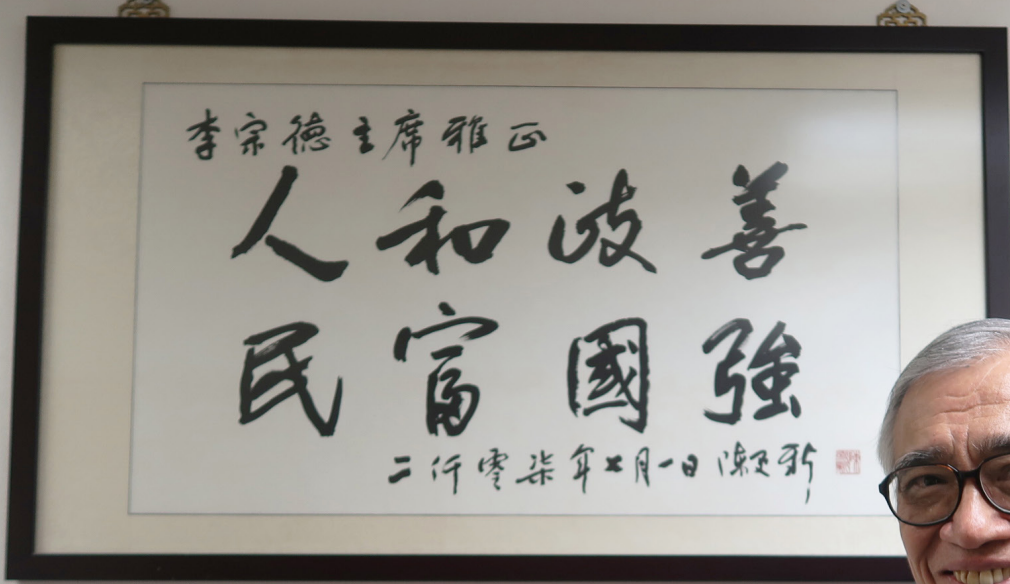 李宗德主席雅正
人和政善
民富國強
二仟零柒年七月一日 陳 新